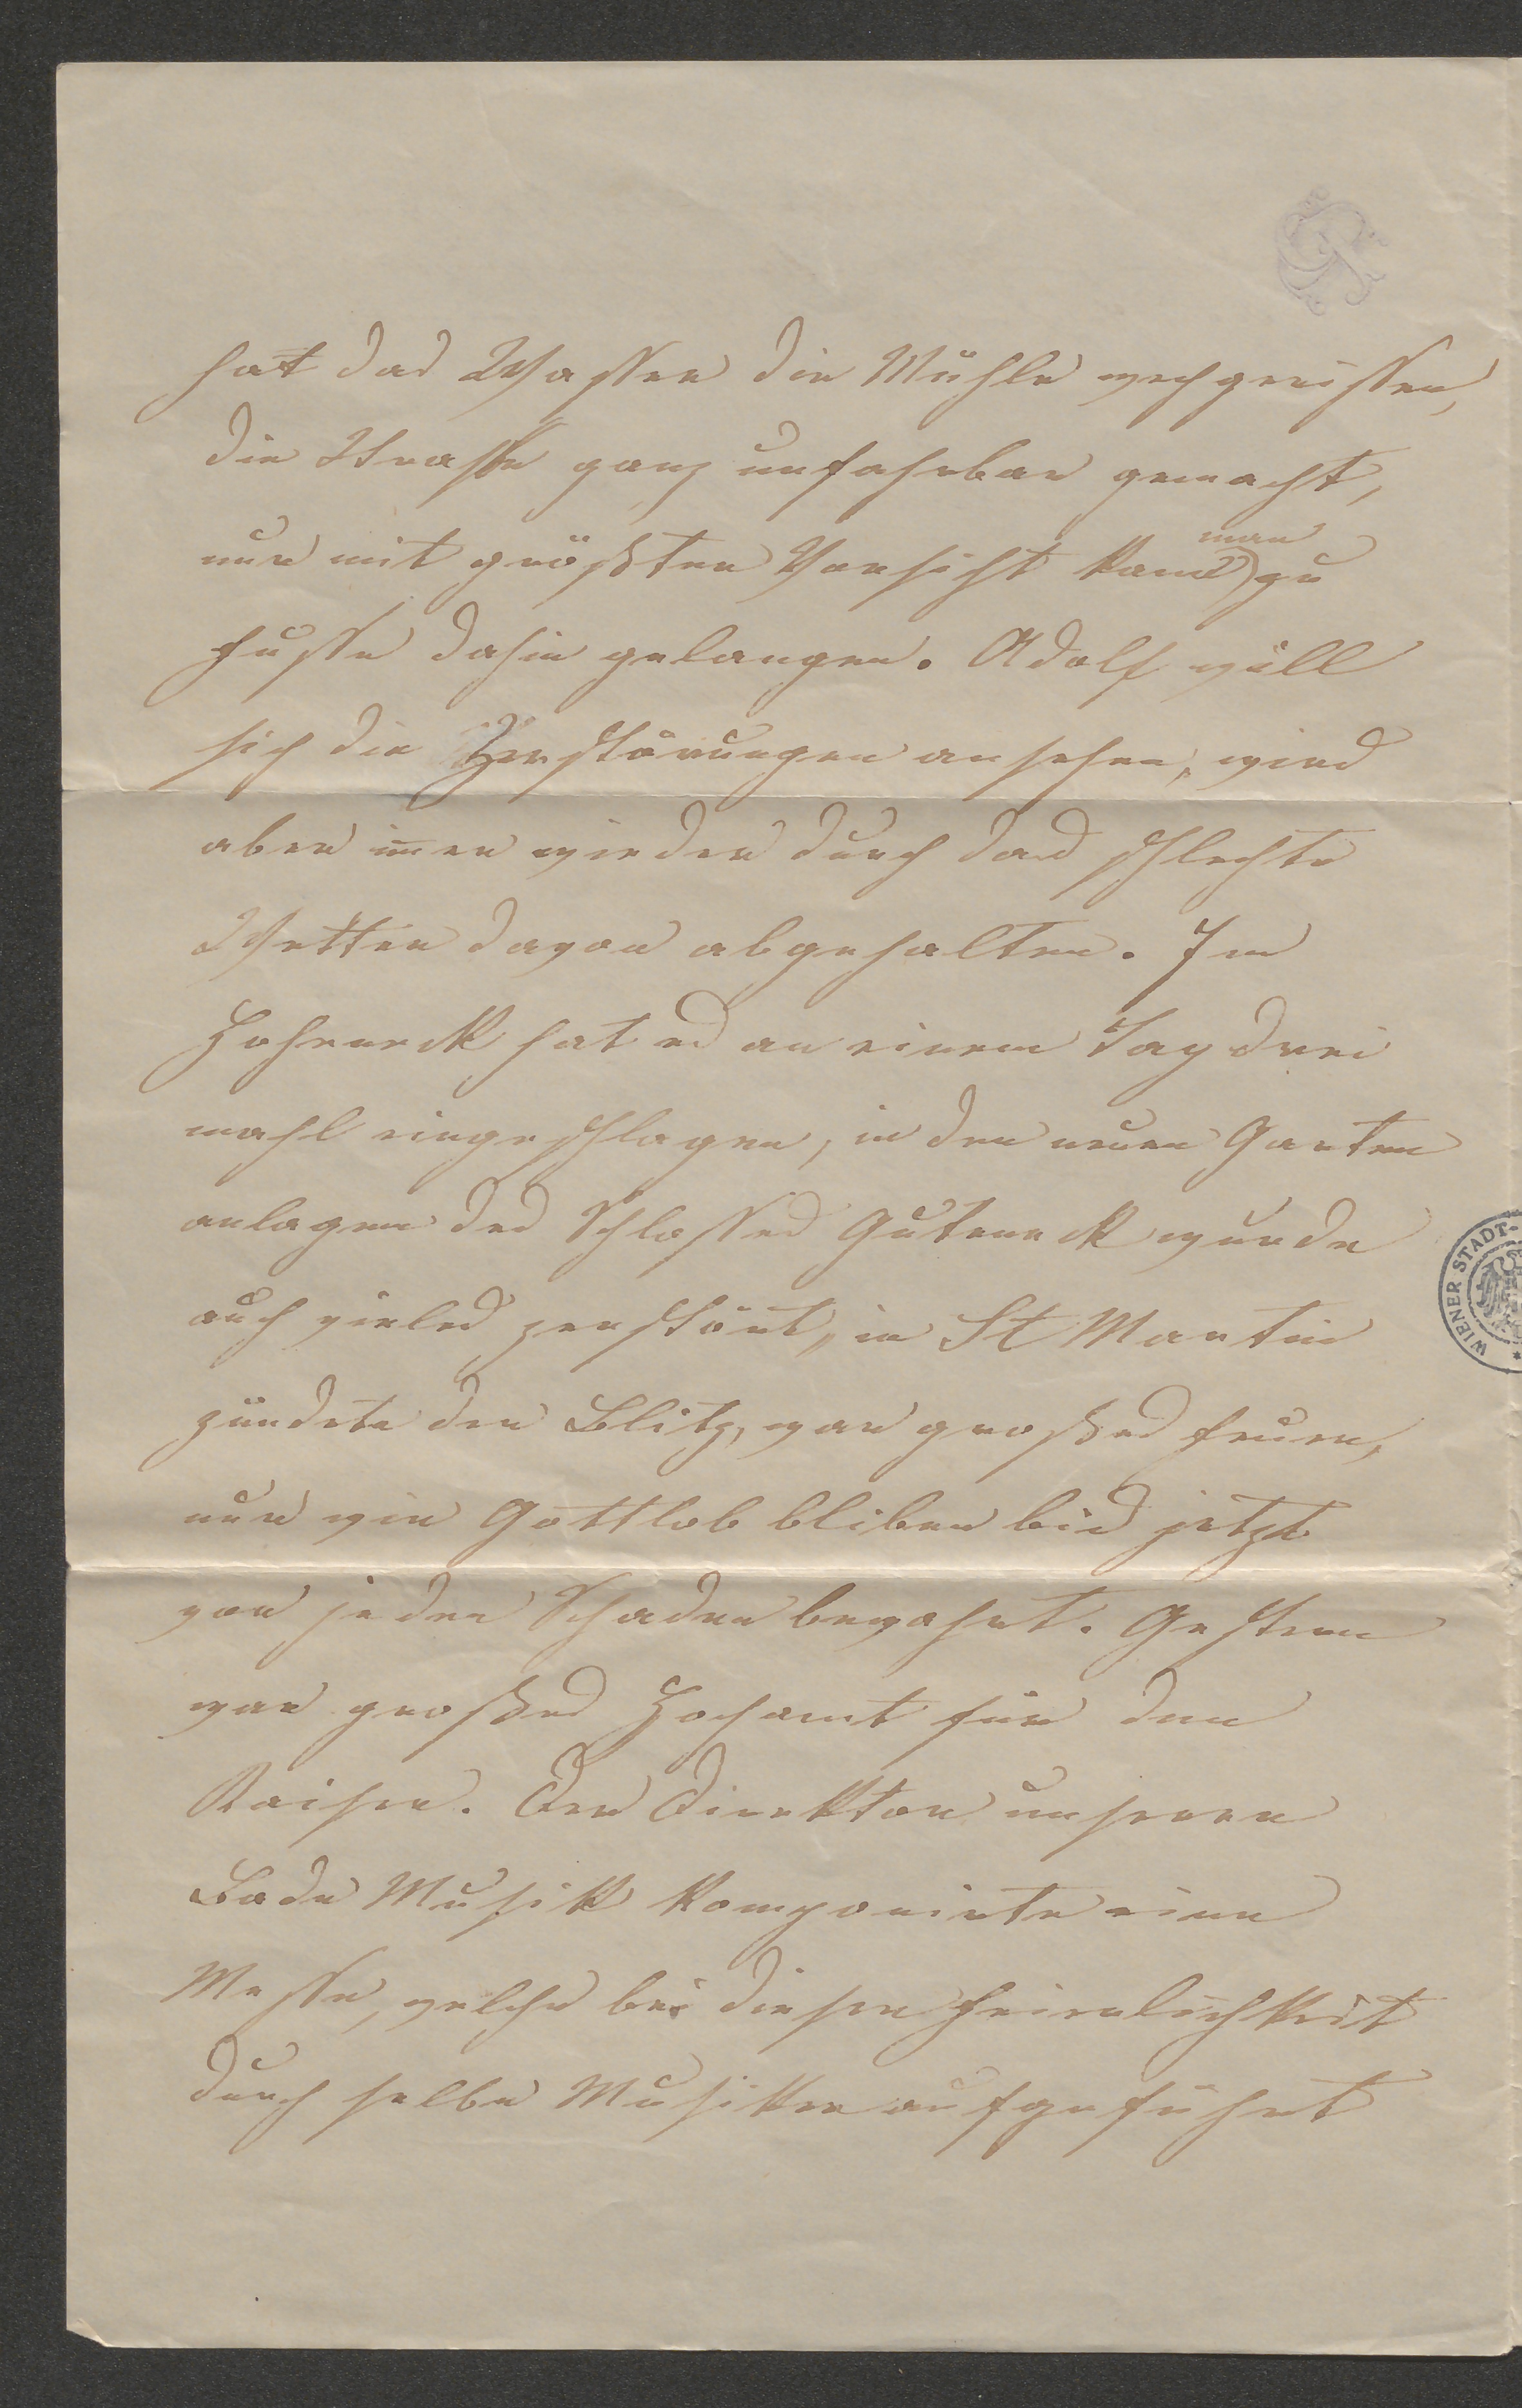 hat das Wasser die Mühle wechgerissen,
die Strasse ganz unfahrbar gemacht,
nur mit größter Vorsicht kann man zu
fusse dahin gelangen. Adolf will
sich die Zerstörungen ansehen, wird
aber im̅er wieder durch das schlechte
Wetter davon abgehalten. Im
Hoheneck hat es an einem Tag drei
mahl eingeschlagen, in den neuen Garten
anlagen des Schlosses Guteneck wurde
auch vieles zerstört, in St Martin
zündete der Blitz, war großes feuer,
nur wir Gottlob bliben bis jetzt
von jeden Schaden bewahrt. Gestern
war großes Hochamt für den
Kaiser. Der Direktor unserer
Bade Musik komponirte eine
Messe, welche bei dieser feierlichkeit
durch selbe Musiker aufgeführt
WIENER STADT-